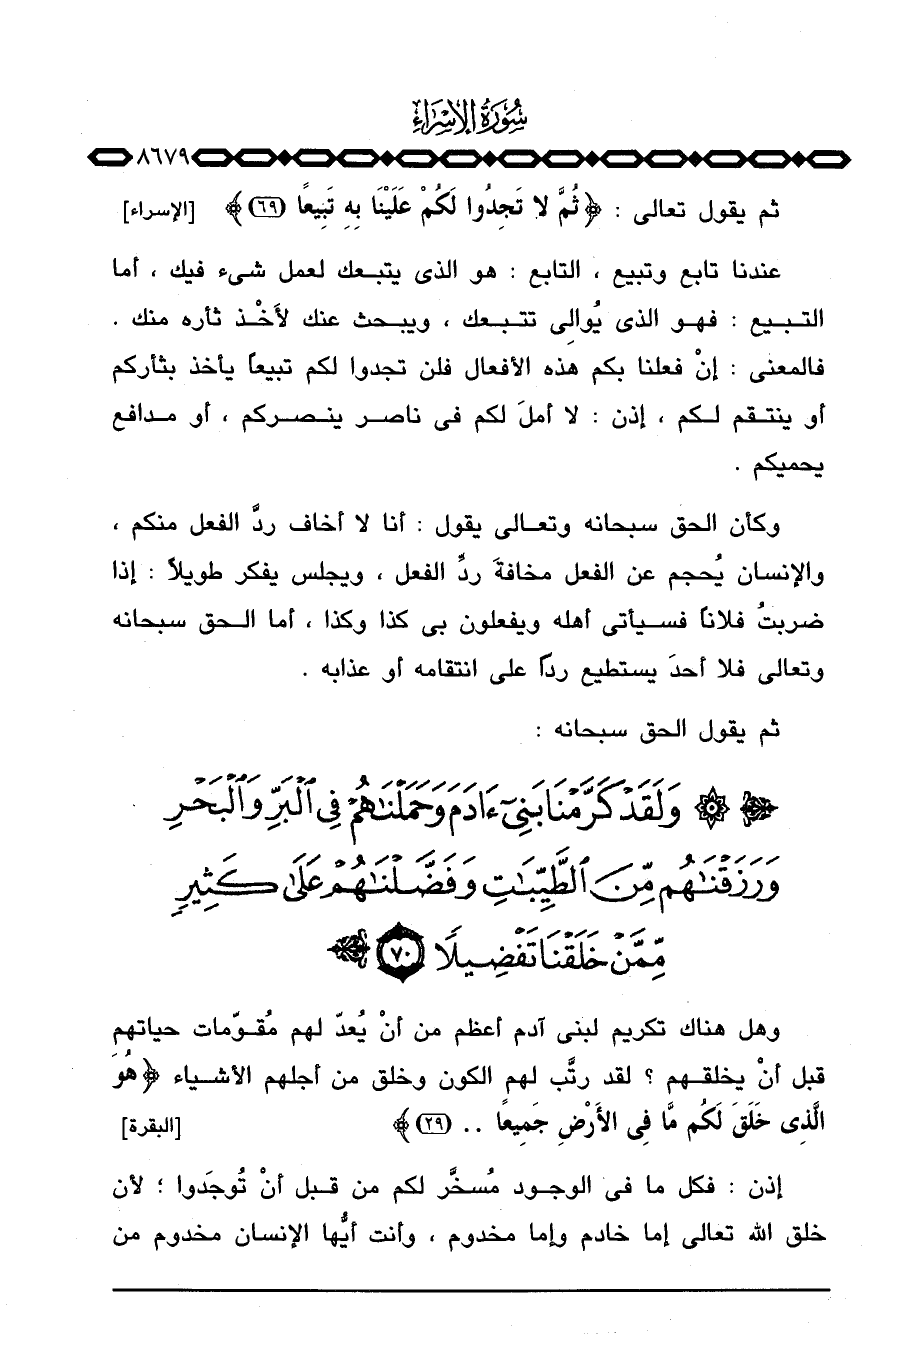 سُورَةُ الإِسْرَاءِ
٨٦٧٩
ثم يقول تعالى : ﴿ثُمَّ لا تَجِدُوا لَكُمْ عَلَيْنَا بِهِ تَبِيعًا (٦٩)﴾ [الإسراء]
عندنا تابع وتبيع ، التابع : هو الذى يتبعك لعمل شىء فيك ، أما
التبيع : فهو الذى يُوالِى تتبعك ، ويبحث عنك لأخْذ ثأره منك .
فالمعنى : إنْ فعلنا بكم هذه الأفعال فلن تجدوا لكم تبيعاً يأخذ بثأركم
أو ينتقم لكم ، إذن : لا أملَ لكم فى ناصر ينصركم ، أو مدافع
يحميكم .
وكأن الحق سبحانه وتعالى يقول : أنا لا أخاف ردَّ الفعل منكم ،
والإنسان يُحجم عن الفعل مخافةَ ردِّ الفعل ، ويجلس يفكر طويلاً : إذا
ضربتُ فلاناً فسيأتى أهله ويفعلون بى كذا وكذا ، أما الحق سبحانه
وتعالى فلا أحدَ يستطيع رداً على انتقامه أو عذابه .
ثم يقول الحق سبحانه :
﴿ ۞ وَلَقَدْ كَرَّمْنَا بَنِىٓ ءَادَمَ وَحَمَلْنَٰهُمْ فِى ٱلْبَرِّ وَٱلْبَحْرِ
وَرَزَقْنَٰهُم مِّنَ ٱلطَّيِّبَٰتِ وَفَضَّلْنَٰهُمْ عَلَىٰ كَثِيرٍ
مِّمَّنْ خَلَقْنَا تَفْضِيلًا ٧٠ ﴾
وهل هناك تكريم لبنى آدم أعظم من أنْ يُعدّ لهم مُقوّمات حياتهم
قبل أنْ يخلقهم ؟ لقد رتَّب لهم الكون وخلق من أجلهم الأشياء ﴿هُوَ
الَّذِى خَلَقَ لَكُم مَّا فِى الأَرْضِ جَمِيعًا .. (٢٩)﴾ [البقرة]
إذن : فكل ما فى الوجود مُسخَّر لكم من قبل أنْ تُوجَدوا ؛ لأن
خلق الله تعالى إما خادم وإما مخدوم ، وأنت أيُّها الإنسان مخدوم من